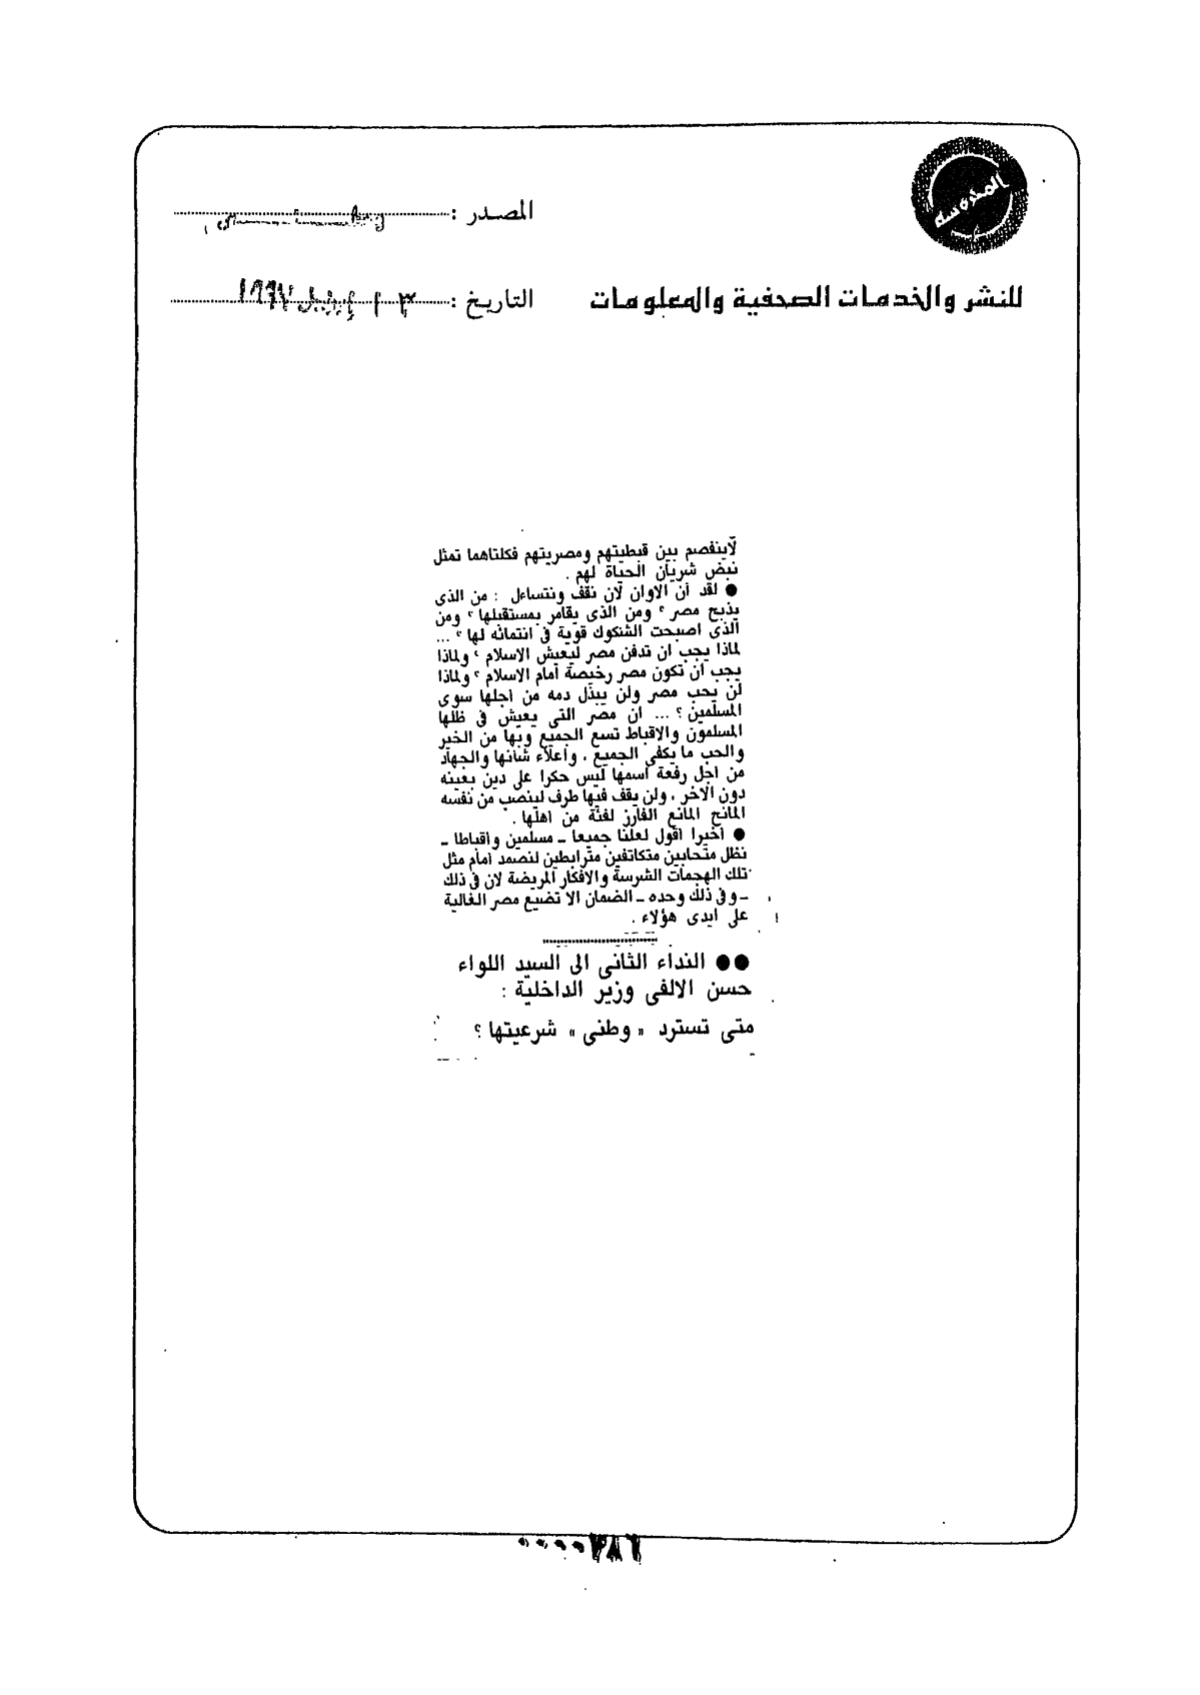 المحروسة
المصدر :
للنشر والخدمات الصحفية والمعلومات
التاريخ : ١٣ إبريل ١٩٩٧
لاينفصم بين قبطيتهم ومصريتهم فكلتاهما تمثل
نبض شريان الحياة لهم .
● لقد آن الاوان لان نقف ونتساءل : من الذى
يذبح مصر ؟ ومن الذى يقامر بمستقبلها ؟ ومن
الذى اصبحت الشكوك قوية فى انتمائه لها ؟ ...
لماذا يجب ان تدفن مصر ليعيش الاسلام ؟ ولماذا
يجب ان تكون مصر رخيصة امام الاسلام ؟ ولماذا
لن يحب مصر ولن يبذل دمه من اجلها سوى
المسلمين ؟ ... ان مصر التى يعيش فى ظلها
المسلمون والاقباط تسع الجميع وبها من الخير
والحب ما يكفى الجميع ، واعلاء شانها والجهاد
من اجل رفعة اسمها ليس حكرا على دين بعينه
دون الاخر ، ولن يقف فيها طرف لينصب من نفسه
المانح المانع الفارز لفئة من اهلها .
● اخيرا اقول لعلنا جميعا ـ مسلمين واقباطا ـ
نظل متحابين متكاتفين مترابطين لنصمد امام مثل
تلك الهجمات الشرسة والافكار المريضة لان فى ذلك
ـ وفى ذلك وحده ـ الضمان الا تضيع مصر الغالية
على ايدى هؤلاء .
●● النداء الثانى الى السيد اللواء
حسن الالفى وزير الداخلية :
متى تسترد « وطنى » شرعيتها ؟